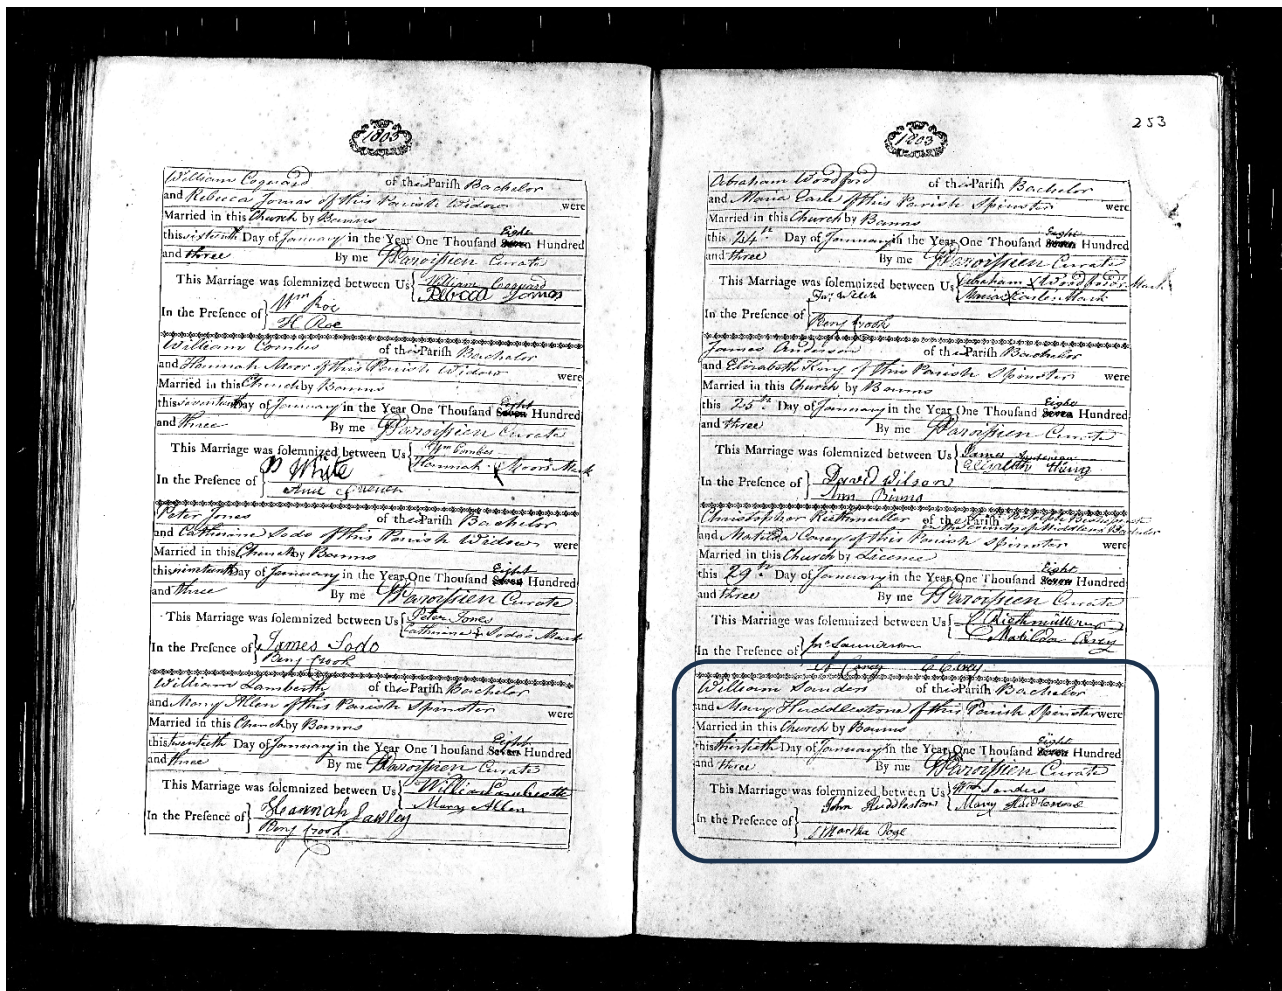 1803
William Coguard of this Parish Bachelor
and Rebecca Jomas of this Parish Widow were
Married in this Church by Banns
this sixteenth Day of January in the Year One Thousand Eight Seven Hundred
and three By me Curate
This Marriage was solemnized between Us William Coguard
Rebecca Jomas
Wm Roe
In the Presence of
H Roe
William Combes of this Parish Bachelor
and Hannah Moor of this Parish Widow were
Married in this Church by Banns
this seventeenth Day of January in the Year One Thousand Eight Seven Hundred
and three By me Curate
This Marriage was solemnized between Us Wm Combes
Hannah X Moor's Mark
White
In the Presence of
Ann
Peter Jones of this Parish Bachelor
and Catharine Sodo of this Parish Widow were
Married in this Church by Banns
this nineteenth Day of January in the Year One Thousand Eight Seven Hundred
and three By me Curate
This Marriage was solemnized between Us Peter Jones
Catharine X Sodo's Mark
In the Presence of James Sodo
Benj Crook
William Lamberth of this Parish Bachelor
and Mary Allen of this Parish Spinster were
Married in this Church by Banns
this twentieth Day of January in the Year One Thousand Eight Seven Hundred
and three By me Curate
This Marriage was solemnized between Us William
Mary Allen
In the Presence of Hannah Lawley
Benj Crook
253
1803
Abraham Woodford of this Parish Bachelor
and Maria Earle of this Parish Spinster were
Married in this Church by Banns
this 24th Day of January in the Year One Thousand Eight Seven Hundred
and three By me Curate
This Marriage was solemnized between Us Abraham X Woodford's Mark
Maria X Earles Mark
In the Presence of
Benj Crook
James Anderson of this Parish Bachelor
and Elizabeth King of this Parish Spinster were
Married in this Church by Banns
this 25th Day of January in the Year One Thousand Eight Seven Hundred
and three By me Curate
This Marriage was solemnized between Us James Anderson
Elizabeth King
In the Presence of David Wilson
Ann Binns
Christopher Riethmuller of the Parish
in the County of Middlesex Bachelor
and Matilda Carey of this Parish Spinster were
Married in this Church by Licence
this 29th Day of January in the Year One Thousand Eight Seven Hundred
and three By me Curate
This Marriage was solemnized between Us C Riethmüller
Matilda Carey
In the Presence of Jno Saunderson
Carey C Carey
William Sanders of this Parish Bachelor
and Mary Huddlestone of this Parish Spinster were
Married in this Church by Banns
this thirtieth Day of January in the Year One Thousand Eight Seven Hundred
and three By me Curate
This Marriage was solemnized between Us Wm Sanders
John Huddlestone Mary Huddlestone
In the Presence of
Martha Page